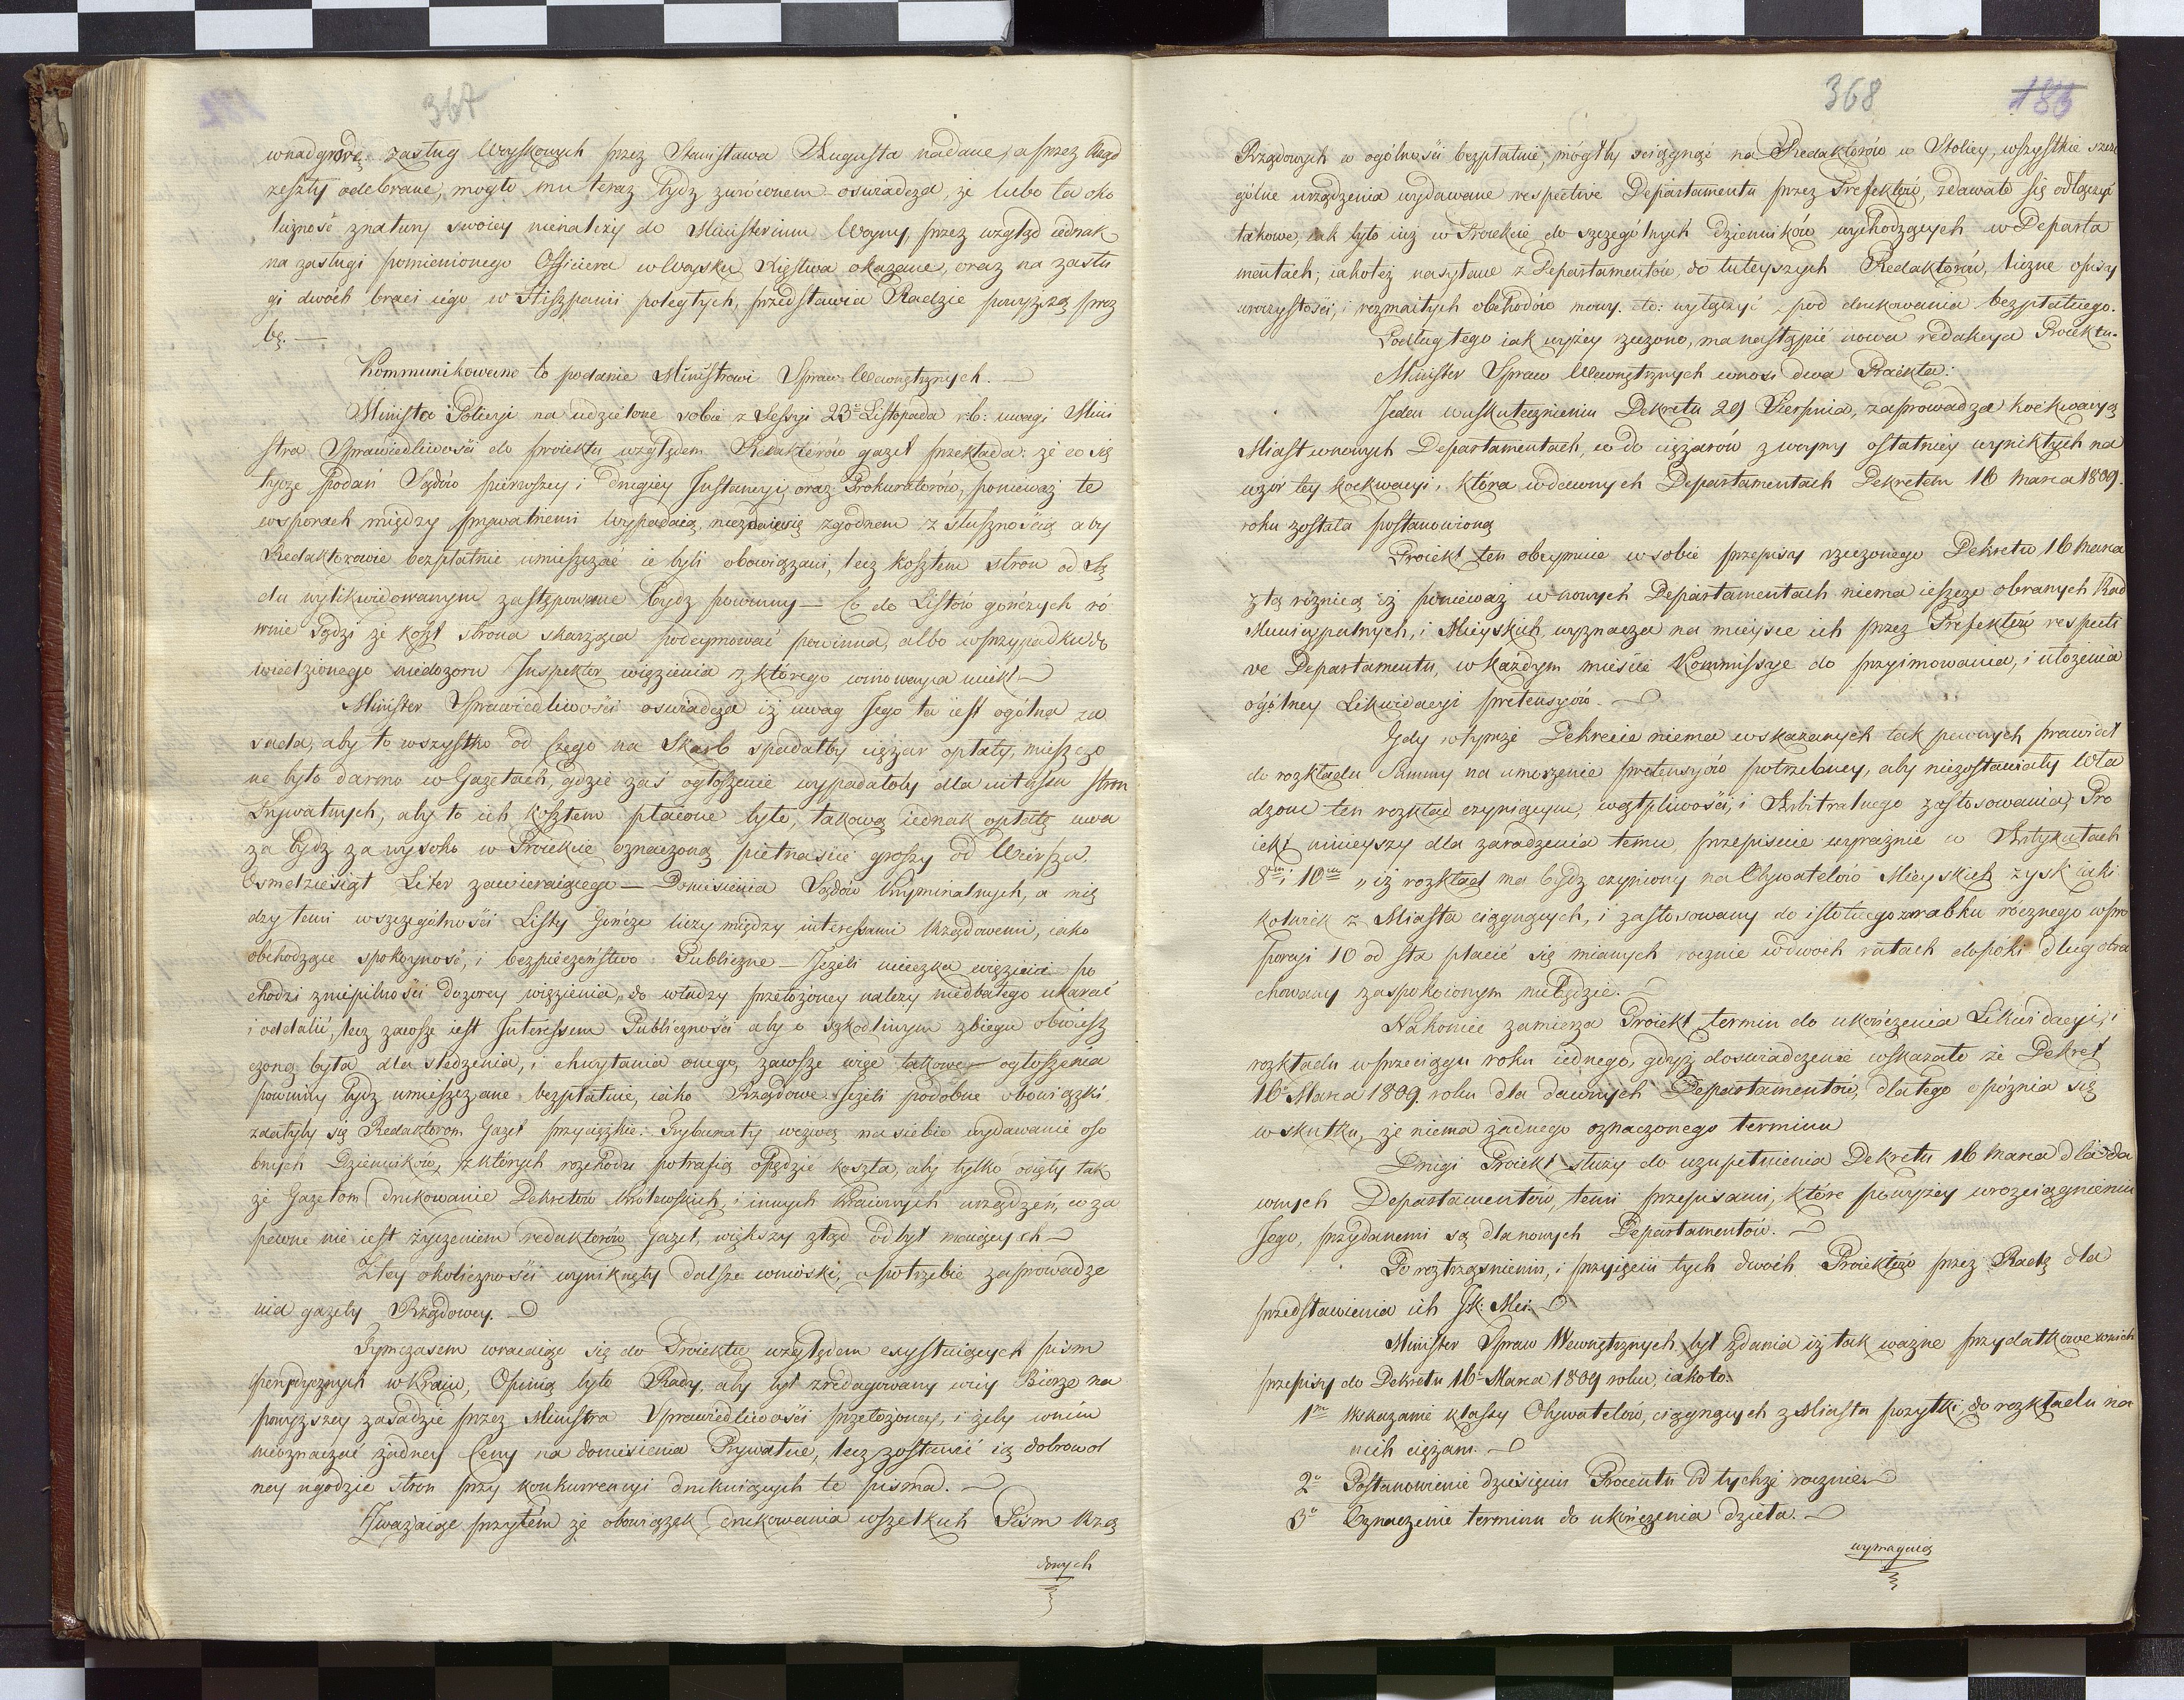 367
wnadgrodę zasług Woyskowych przez Stanisława Augusta nadane, a przez Rząd
zeszły odebrane, mogło mu teraz bydz zwróconem – oswiadcza, że lubo ta oko
liczność z natury swoiey nienależy do Ministerium Woyny, przez wzgląd iednak
na zasługi pomienionego Officiera w Woysku Xięstwa okazane, oraz na zasłu
gi dwóch braci iego w Hiszpanii poległych, przedstawia Radzie powyższą proz
bę. —
Kommunikowano to podanie Ministrowi Spraw Wewnętrznych. —
Minister Policyi na udzielone sobie z Sessyi 23º Listopada r.b: uwagi Mini
stra Sprawiedliwości do proiektu względem Redaktorów gazet przekłada: że co się
tycze podań Sądów pierwszey i Drugiey Instancyi, oraz Prokuratorów, ponieważ te
w sporach między prywatnemi wypadaią, niezdaie się zgodnem z słusznością aby
Redaktorowie bezpłatnie umieszczać ie byli obowiązani, lecz kosztem stron od Są
du wylikwidowanym zastępowane bydz powinny — Co do Listów gończych ró
wnie sądzi że koszt strona skarżąca podeymować powinna, albo w przypadku do
wiedzionego niedozoru Inspektor więzienia z którego winowayca uciekł —
Minister Sprawiedliwości oswiadcza iż uwag Jego ta iest ogólna za
sada, aby to wszystko od czego na Skarb spadałby ciężar opłaty, mieszczo
ne było darmo w Gazetach, gdzie zaś ogłoszenie wypadałoby dla intesu stron
Prywatnych, aby to ich kosztem płacone było, takową iednak opłatę uwa
za bydz za wysoko w Proiekcie oznaczoną piętnaście groszy od Wiersza
Osmdziesiąt Liter zawieraiącego — Doniesienia Sądów Kryminalnych, a mię
dzy temi wszczególności Listy Gończe liczy między interessami Rządowemi, iako
obchodzące spokoyność, i bezpieczeństwo Publiczne — Jeżeli ucieczka więźnia po
chodzi z niepilności dozorcy więzienia, do władzy przełożoney należy niedbałego ukarać
i oddalić, lecz zawsze iest Interessem Publiczności aby o szkodliwym zbiegu obwiesz
czoną była dla sledzenia, i chwytania onego, zawsze więc takowe ogłoszenia
powinny bydz umieszczane bezpłatnie, iako Rządowe. Jeżeli podobne obowiązki
zdałyby się Redaktorom Gazet przyciężkie: Trybunały wezwą na siebie wydawanie oso
bnych Dzienników, z których rozchodu potrafią opędzić koszta, aby tylko odięły tak
że Gazetom drukowanie Dekretów Królewskich, i innych kraiowych urządzeń, co za
pewne nie iest życzeniem redaktorów Gazet, większy ztąd odbyt maiących —
Z tey okoliczności wyniknęły dalsze wnioski, o potrzebie zaprowadze
nia gazety Rządowey. —
Tymczasem wracaiąc się do Proiektu względem exystuiących pism
peryodycznych w Kraiu, Opinią było Rady, aby był zredagowany w iey Biórze na
powyższey zasadzie przez Ministra Sprawiedliwości przełożoney, i żeby w nim
nieoznaczać żadney Ceny na doniesienia Prywatne, lecz zostawić ią dobrowol
ney ugodzie stron przy konkurrencyi drukuiących te pisma. —
Uwazaiąc przytém że obowiązek drukowania wszelkich Pism Rzą
dowych
368
183
Rządowych w ogólności bezpłatnie, mógłby sciągnąć na Redaktorów w Stolicy, wszystkie szcze
gólne urządzenia wydawane respective Departamentu przez Prefektów, zdawało się odłączyć
takowe, iak było iuż w Proiekcie do szczególnych dzienników wychodzących w Departa
mentach; iakoteż nasyłane z Departamentów, do tuteyszych Redaktorów, liczne opisy
uroczystości, i rozmaitych obchodów mowy. etc: wyłączyć z pod drukowania bezpłatnego.
Podług tego iak wyżey rzeczono, ma nastąpić nowa redakcya Proiektu.
Minister Spraw Wewnętrznych wnosi dwa Proiekta:
Jeden w uskutecznieniu Dekretu 29 Sierpnia, zaprowadza koekwacyą
Miast w nowych Departamentach, co do ciężarów z woyny ostatniey wynikłych na
wzór tey koekwacyi, która w dawnych Departamentach Dekretem 16 Marca 1809.
roku została postanowioną
Proiekt ten obeymuie w sobie przepisy rzeczonego Dekretu 16 Marca
z tą różnicą iż ponieważ w nowych Departamentach niema ieszcze obranych Rad
Municypalnych, i Mieyskich, wyznacza na mieysce ich przez Prefektów respecti
ve Departamentu, w każdym mieście Kommissye do przyimowania, i ułożenia
ogólney Likwidacyi pretensyów. —
Gdy w tymże Dekrecie niema wskazanych tak pewnych prawideł
do rozkładu Summy na umorzenie pretensyów potrzebney, aby niezostawiały Wła
dzom ten rozkład czyniącym, wątpliwości, i Arbitralnego zastosowania; Pro
iekt ninieyszy dla zaradzenia temu, przepisuie wyraźnie w Artykułach
8m i 10m „iż rozkład ma bydz czyniony na Obywatelów Mieyskich zysk iaki
kolwiek z Miasta ciągnących, i zastosowany do istotnego zarabku rocznego w pro
porcyi 10 od sta płacić się mianych rocznie w dwoch ratach dopóki dług obra
chowany zaspokoionym niebędzie. —
Nakoniec zamierza Proiekt termin do ukończenia Likwidacyi, i
rozkładu w przeciągu roku iednego, gdyż doswiadczenie wskazało że Dekret
16º Marca 1809. roku dla dawnych Departamentów, dlatego opóznia się
w skutku, że niema żadnego oznaczonego terminu
Drugi Proiekt służy do uzupełnienia Dekretu 16 Marca dla da
wnych Departamentów, temi przepisami, które powyżey w rozciągnieniu
Jego, przydanemi są dla nowych Departamentów. —
Po roztrząsnieniu, i przyięciu tych dwóch Proiektów przez Radę dla
przedstawienia ich Jk: Mci: —
Minister Spraw Wewnętrznych był zdania iż tak ważne przydatkowe
przepisy do Dekretu 16º Marca 1809 roku, iakoto.
1m Wskazanie klassy Obywatelów, ciągnących z Miasta pożytki, do rozkładu na
nich ciężaru. —
2º Postanowienie dziesięciu Procentu od tychże rocznie. —
3º Oznaczenie terminu do ukończenia dzieła. —
wymagaią